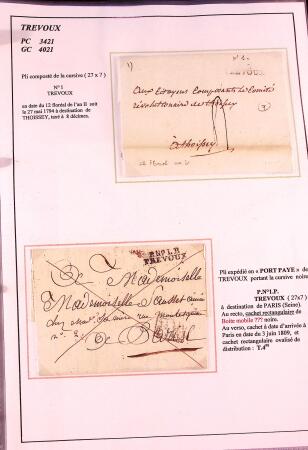 TREVOUX
PC 3421
GC 4021
Pli composté de la cursive (27 x 7)
N°1
TREVOUX
en date du 12 floréal de l'an II soit
le 27 mai 1794 à destination de
THOISSEY, taxé à 8 décimes.
aux Citoyens Composants le Comité
révolutionnaire de
à thoissey
Pli expédié en « PORT PAYE » de
TREVOUX portant la cursive noire
P.N°1.P.
TREVOUX (27x7)
à destination de PARIS (Seine).
Au recto, cachet rectangulaire de
Boite mobile ??? noire.
Au verso, cachet à date d'arrivée à
Paris en date du 3 juin 1809, et
cachet rectangulaire ovalisé de
distribution : T.4
P.N°1.P.
TREVOUX
A Mademoiselle
Mademoiselle
chez rue
n°
A Paris